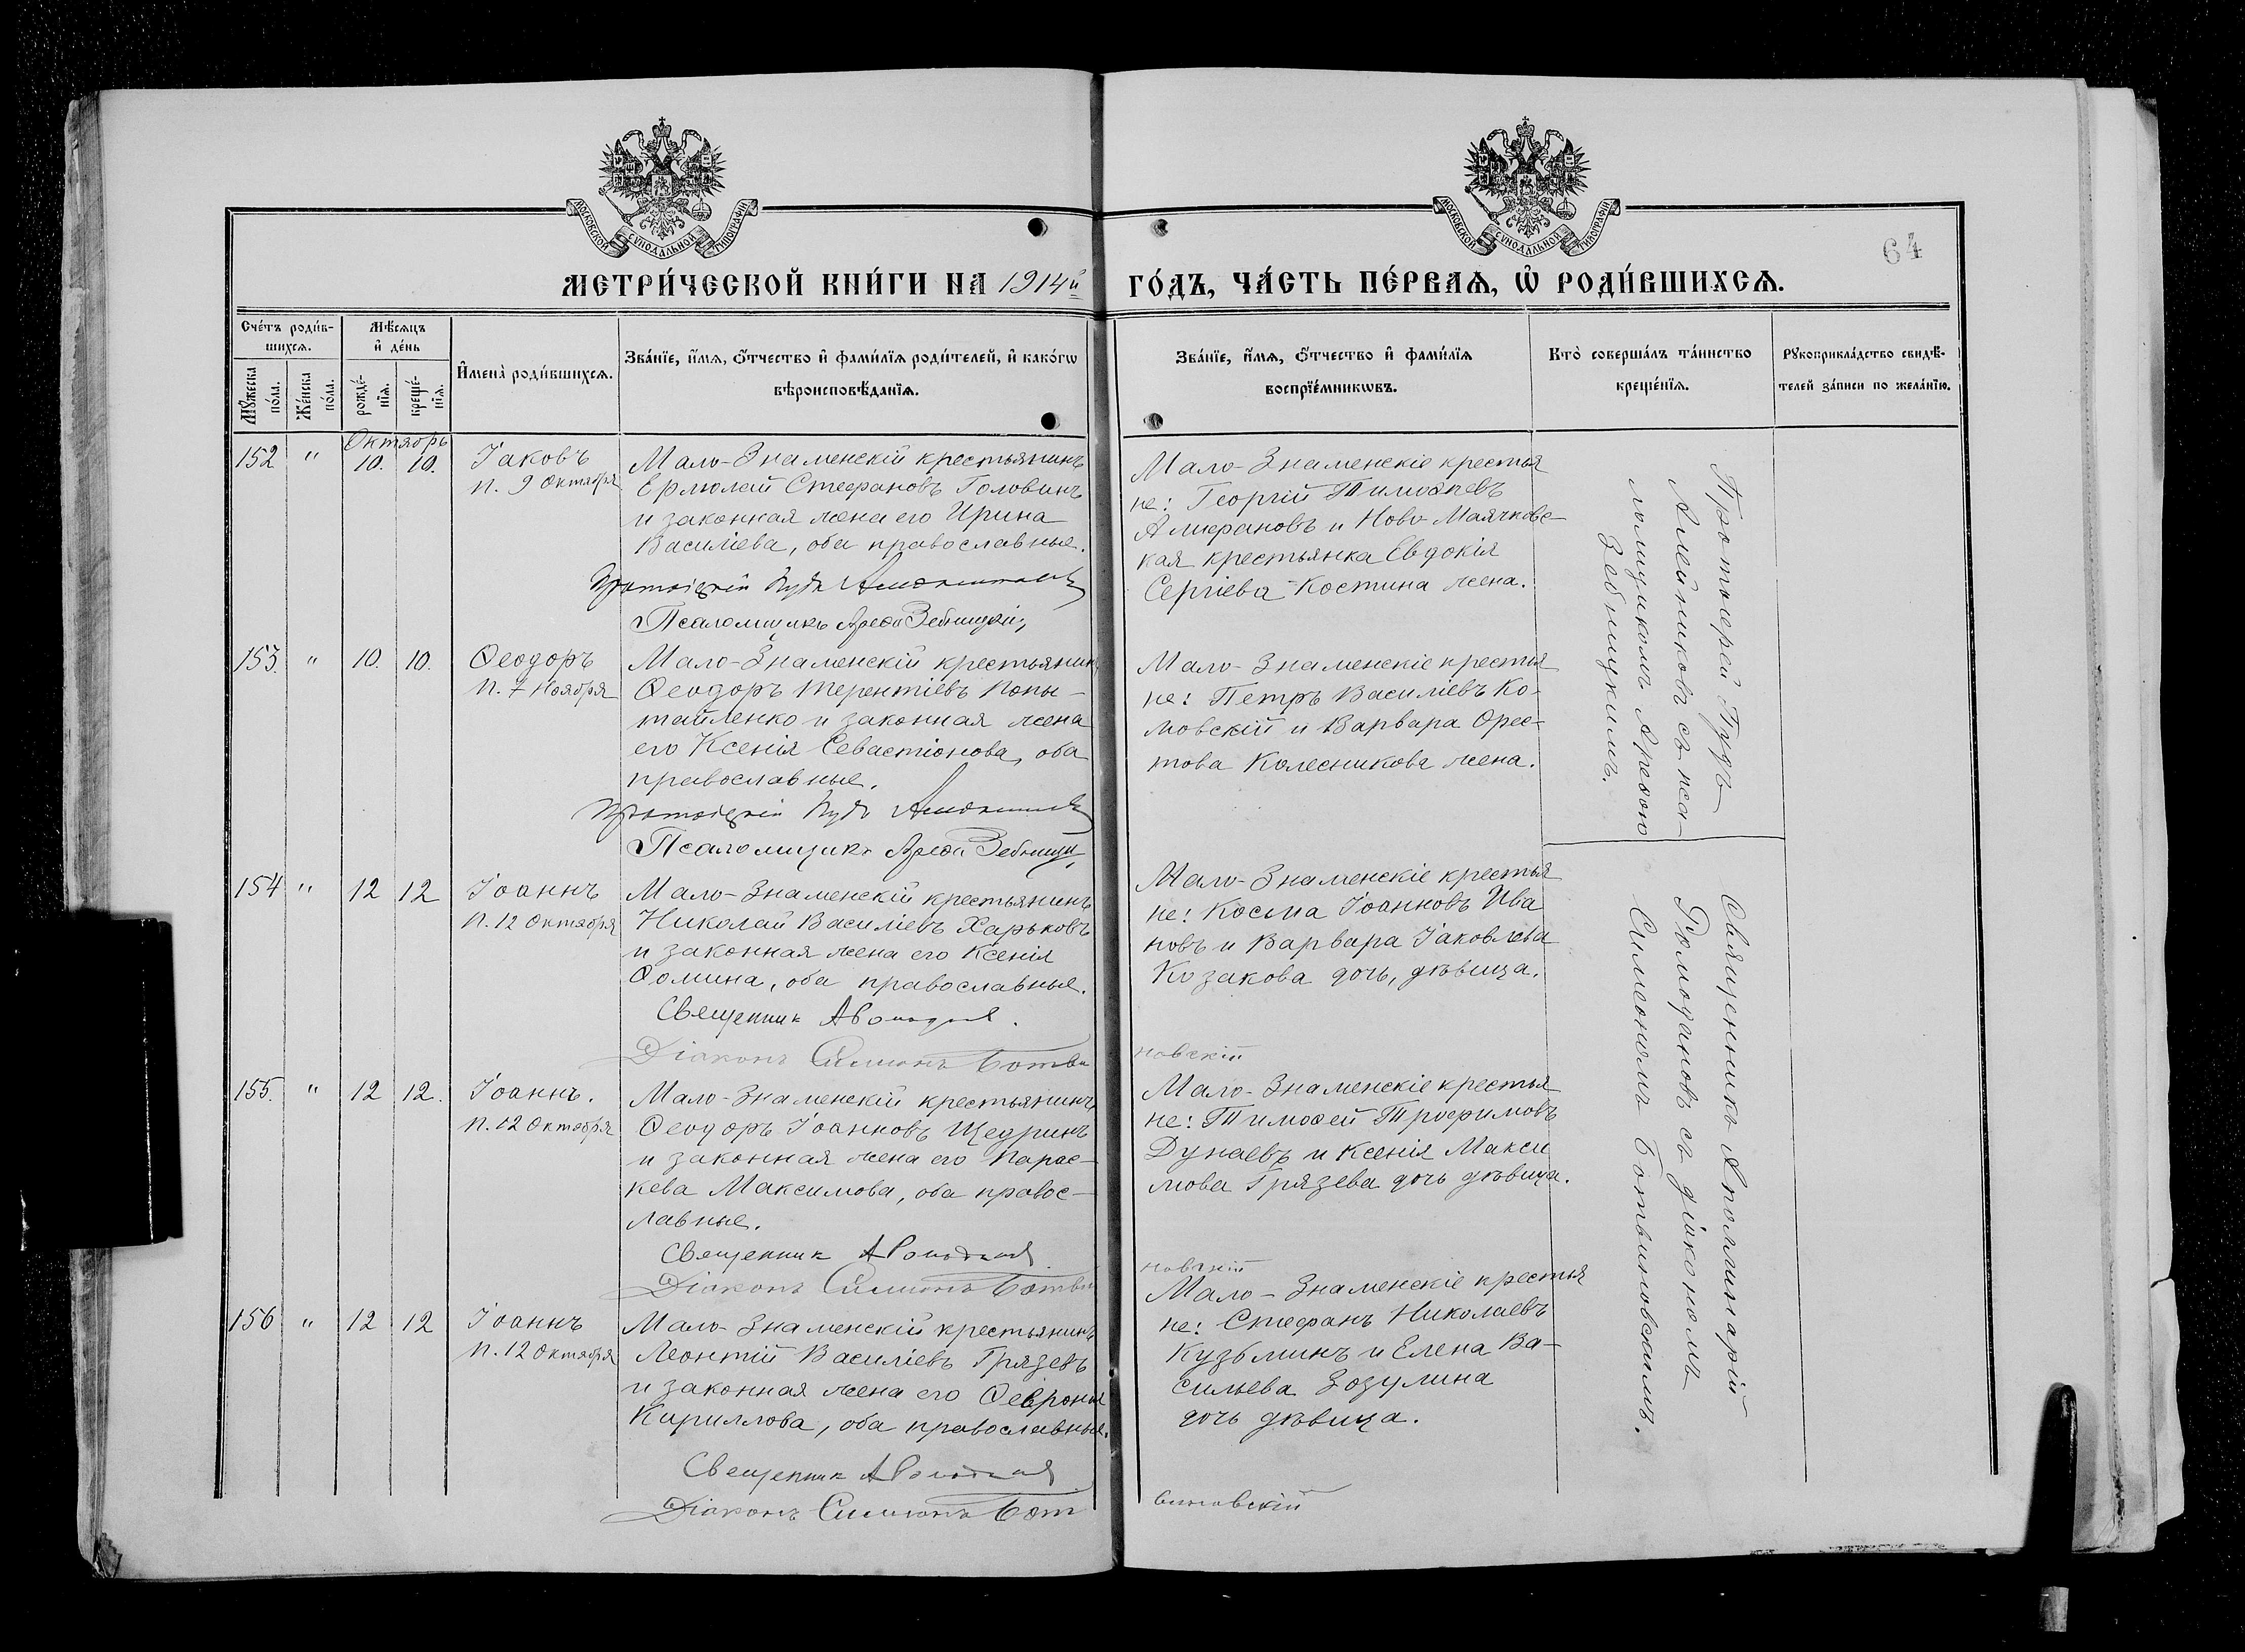 МОСКОВСКОЙ СѴНОДАЛЬНОЙ ТИПОГРАФІИ
МОСКОВСКОЙ СѴНОДАЛЬНОЙ ТИПОГРАФІИ
64
МЕТРИ́ЧЕСКОЙ КНИ́ГИ НА 1914й ГО́ДЪ, ЧА́СТЬ ПЕ́РВАѦ, Ѡ҆ РОДИ́ВШИХСѦ.
Сче́тъ роди́в-
шихсѧ.
Мꙋ́жеска по́ла.
Же́нска по́ла.
Мѣ́сѧцъ
и҆ де́нь
рожде́-
нїѧ.
креще́-
нїѧ.
И҆мена̀ роди́вшихсѧ.
Зва́нїе, и҆́мѧ, ѻ҆́тчество и҆ фами́лїѧ роди́телей, и҆ како́гѡ
вѣроисповѣ́данїѧ.
Зва́нїе, и҆́мѧ, ѻ҆́тчество и҆ фами́лїѧ
воспрїе́мникѡвъ.
Кто̀ соверша́лъ та́инство
креще́нїѧ.
Рꙋкоприкла́дство свидѣ́-
телей за́писи по жела́нїю.
Октябрь
152 " 10. 10.
Іаковъ
п. 9 Октября
Мало-Знаменскій крестьянинъ
Ермолай Стефановъ Головинъ
и законная жена его Ирина
Василіева, оба православные.
Протоіерей Пудъ Алейниковъ
Псаломщикъ Арефа Зебницкій
Мало-Знаменскіе крестья
не: Георгій Тимоѳеевъ
Алферановъ и Ново-Маячковс-
кая крестьянка Евдокія
Сергіева Костина жена.
153. " 10. 10.
Ѳеодоръ
п. 7 Ноября
Мало-Знаменскій крестьянинъ
Ѳеодоръ Терентіевъ Попы-
тайленко и законная жена
его Ксенія Севастіонова, оба
православные.
Протоіерей Пудъ Алейниковъ
Псаломщикъ Арефа Зебницкій
Мало-Знаменскіе крестья
не: Петръ Василіевъ Ко-
мовскій и Варвара Орес-
това Колесникова жена.
Протоіерей Пудъ
Алейниковъ съ пса-
ломщикомъ Арефою
Зебницкимъ.
154 " 12 12
Іоаннъ
п. 12 Октября
Мало-Знаменскій крестьянинъ
Николай Василіевъ Харьковъ
и законная жена его Ксенія
Ѳомина, оба православные.
Священник А
Діаконъ Симеонъ Ботви
новскій
Мало-Знаменскіе крестья
не: Косма Іоанновъ Ива
новъ и Варвара Іаковлева
Козакова дочь, дѣвица.
155. " 12 12.
Іоаннъ.
п. 12 Октября
Мало-Знаменскій крестьянинъ
Ѳеодоръ Іоанновъ Щедринъ
и законная жена его Парас-
кева Максимова, оба правос-
лавные.
Священник А
Діаконъ Симеонъ Ботви
новскій
Мало-Знаменскіе крестья
не: Тимоѳей Трофимовъ
Дунаевъ и Ксенія Макси
мова Грязева дочь дѣвица.
156 " 12 12
Іоаннъ
п. 12 Октября
Мало-Знаменскій крестьянинъ
Леонтій Василіевъ Грязевъ
и законная жена его Ѳевронія
Кириллова, оба православные.
Священник А
Діаконъ Симеонъ Бот
виновскій
Мало-Знаменскіе крестья
не: Стефанъ Николаевъ
Кузьминъ и Елена Ва-
сильева Зозулина
дочь дѣвица.
Священникъ Аполлинарій
Ромодановъ съ діакономъ
Симеономъ Ботвиновскимъ.